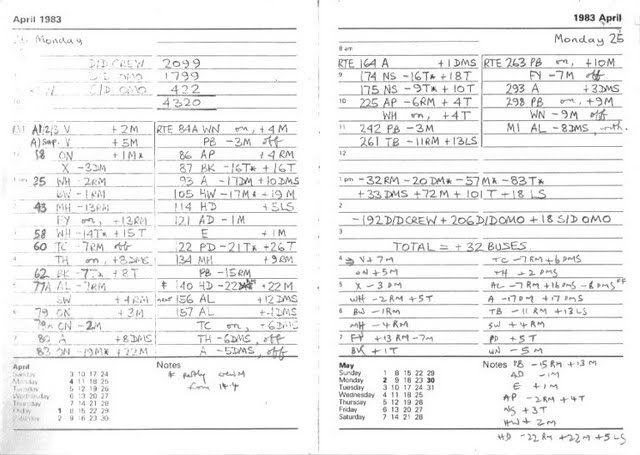 April 1983
25 Monday
D/D CREW 2099
D/D OMO 1799
S/D OMO 422
4320
RTE A1/2/3 V +2M
A) Sup. V +5M
18 ON +1M*
X -3DM
25 WH -2RM
BW -1RM
43 MH -13RM
FY on, +13RM
58 WH -14T* +15T
60 TC -7RM off
TH on, +8DMS
62 BK -7T* +8T
77A AL -7RM
SW +4RM
79 ON +3M
79A ON -2M
80 A +8DMS
83 ON -19M* +22M
RTE 84A WN on, +4M
PB -3M off
86 AP +4RM
87 BK -16T* +16T
93 A -17DM +10DMS
105 HW -17M* +19M
114 HD +5LS
121 AD -1M
E +1M
122 PD -21T* +26T
134 MH +9RM
PB -15RM
* 140 HD -22RM +22M
next 156 AL +12DMS
157 AL +12DMS
TC on, +6DMS
TH -6DMS, off
A -5DMS, off
April
Sunday 3 10 17 24
Monday 4 11 18 25
Tuesday 5 12 19 26
Wednesday 6 13 20 27
Thursday 7 14 21 28
Friday 1 8 15 22 29
Saturday 2 9 16 23 30
Notes
* partly crew M
from 18.4
1983 April
Monday 25
8 am
9
10
11
12
1 pm
2
3
4
5
6
7
RTE 164 A +1DMS
174 NS -16T* +18T
175 NS -9T* +10T
225 AP -6RM +4T
WH on, +4T
242 PB -3M
261 TB -11RM +13LS
RTE 263 PB on, +10M
FY -7M off
293 A +3DMS
298 PB on, +9M
WN -9M off
M1 AL -8DMS, wth.
-32RM -20DM* -57M* -83T*
+33DMS +72M +101T +18LS
-192D/DCREW +206D/DOMO +18 S/D OMO
TOTAL = +32 BUSES
V +7M
ON +5M
X -3DM
WH -2RM +5T
BW -1RM
MH -4RM
FY +13RM -7M
BK +1T
TC -7RM +6DMS
TH +2DMS
AL -7RM +16DMS -8DMS off
A -17DM +17DMS
TB -11RM +13LS
SW +4RM
PD +5T
WN -5M
May
Sunday 1 8 15 22 29
Monday 2 9 16 23 30
Tuesday 3 10 17 24 31
Wednesday 4 11 18 25
Thursday 5 12 19 26
Friday 6 13 20 27
Saturday 7 14 21 28
Notes PB -15RM +13M
AD -1M
E +1M
AP -2RM +4T
NS +3T
HW +2M
HD -22RM +22M +5LS